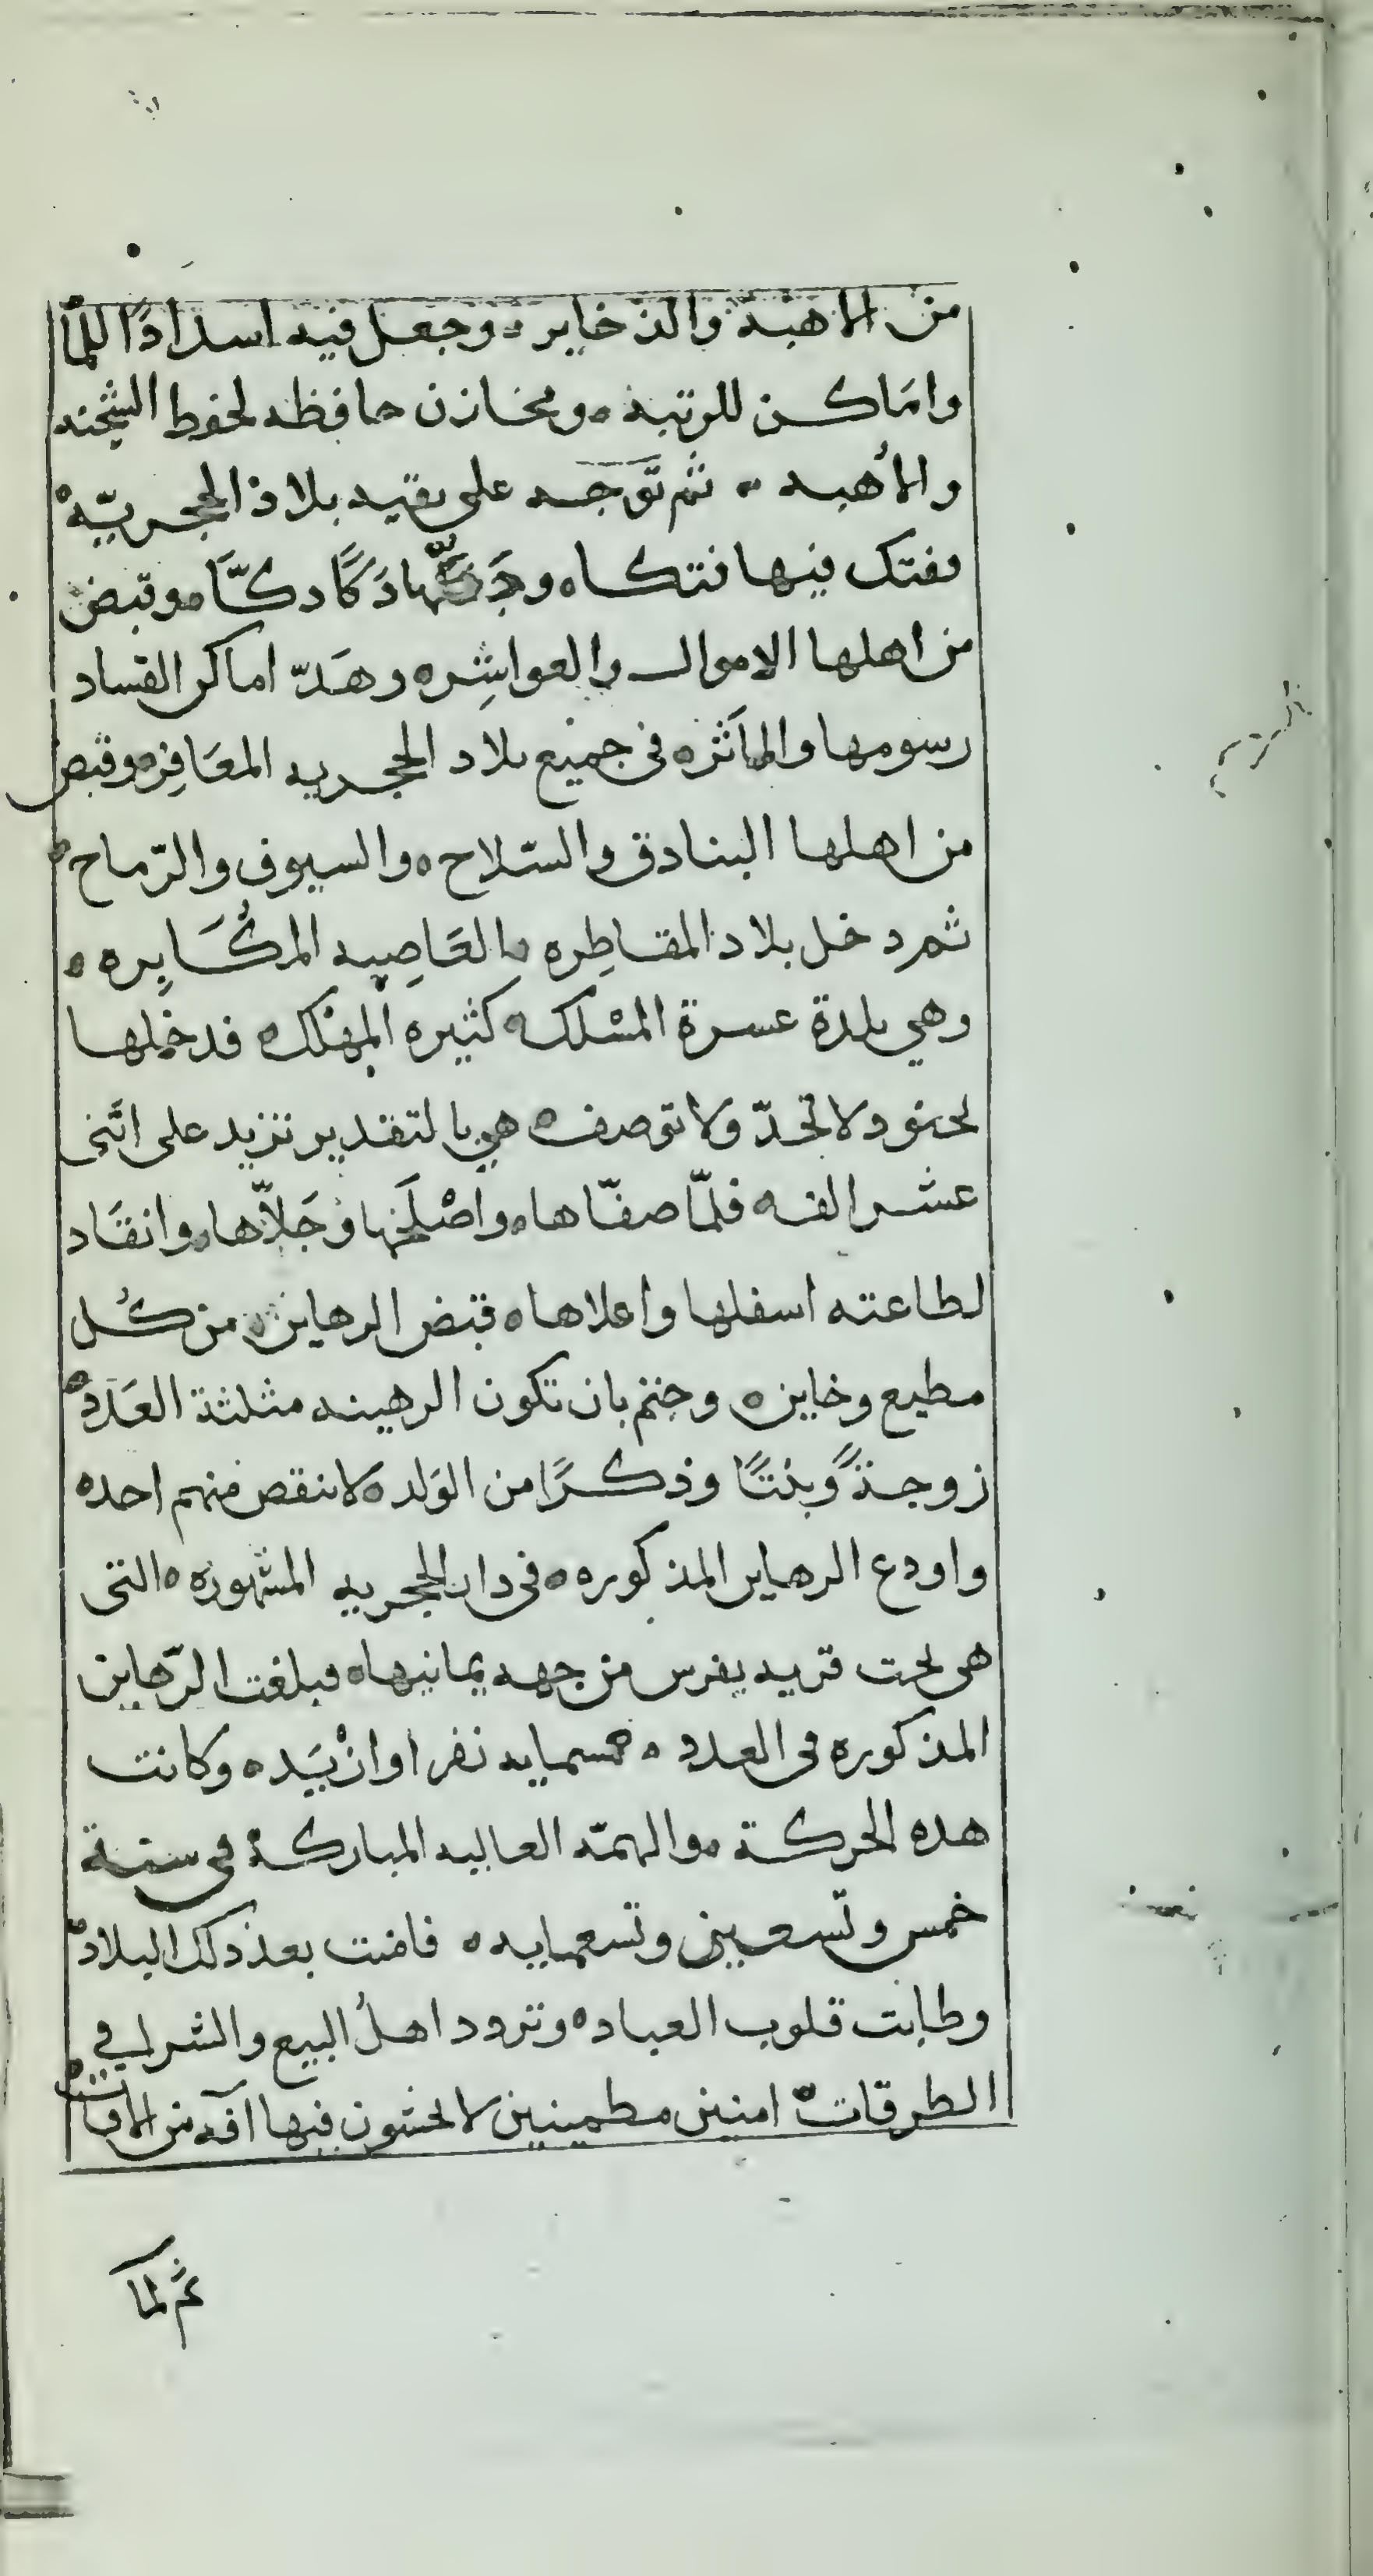 من الاهبة والذخاير ، وجعل فيه اسدادًا للمآ
واماكن للرتبه ه ومخازن حافظه لحفظ الشحنه
والأهبه ، ثم توجه على بقيه بلاد الحجريّه ه
ففتك فيها فتكا ه ودكّها دَكًّا دكًّا ه وقبض
من اهلها الاموال والعواشِر ه وهَدّ اماكن الفساد
رسومها والمآثر ه في جميع بلاد الحجريه المعَافِر ه وقبض
من اهلها البنادق والسّلاح ه والسيوف والرّماح ه
ثم دخل بلاد المقاطِره ه العَاصِيه المكَابِره ه
وهي بلدة عسرة المسْلك ه كثيره المهْلك ه فدخلها
بجنود لا تحدّ ولا توصف ه هي بالتقدير تزيد على اثنى
عشر الف ه فلمّا صفّاها ه واصْلَحَها وجَلاّها ه وانقَاد
لطاعته اسفلها واعلاها ه قبض الرهاين ه من كُل
مطيع وخاين ه وحتم بان تكون الرهينه مثلثة العَدَد ه
زوجةً وبنتًا وذكرًا من الوَلد ه لا ينقص منهم احد ه
واودع الرهاين المذكوره ه في دار الحجريه المشهوره ه التى
هى تحت قريه يفرس من جهه يمانيها ه فبلغت الرّهاين
المذكوره فى العدد ه خمسمايه نفر او ازْيَد ه وكانت
هده الحركة ه والهمّه العاليه المباركة في سنة
خمس وتسعين وتسعمايه ه فامنت بعد ذلك البلاد ه
وطابت قلوب العباد ه وتردد اهلُ البيع والشرا في
الطرقات ه امنين مطمينين لا يخشون فيها آفه من الافات ه
ثم لمآ